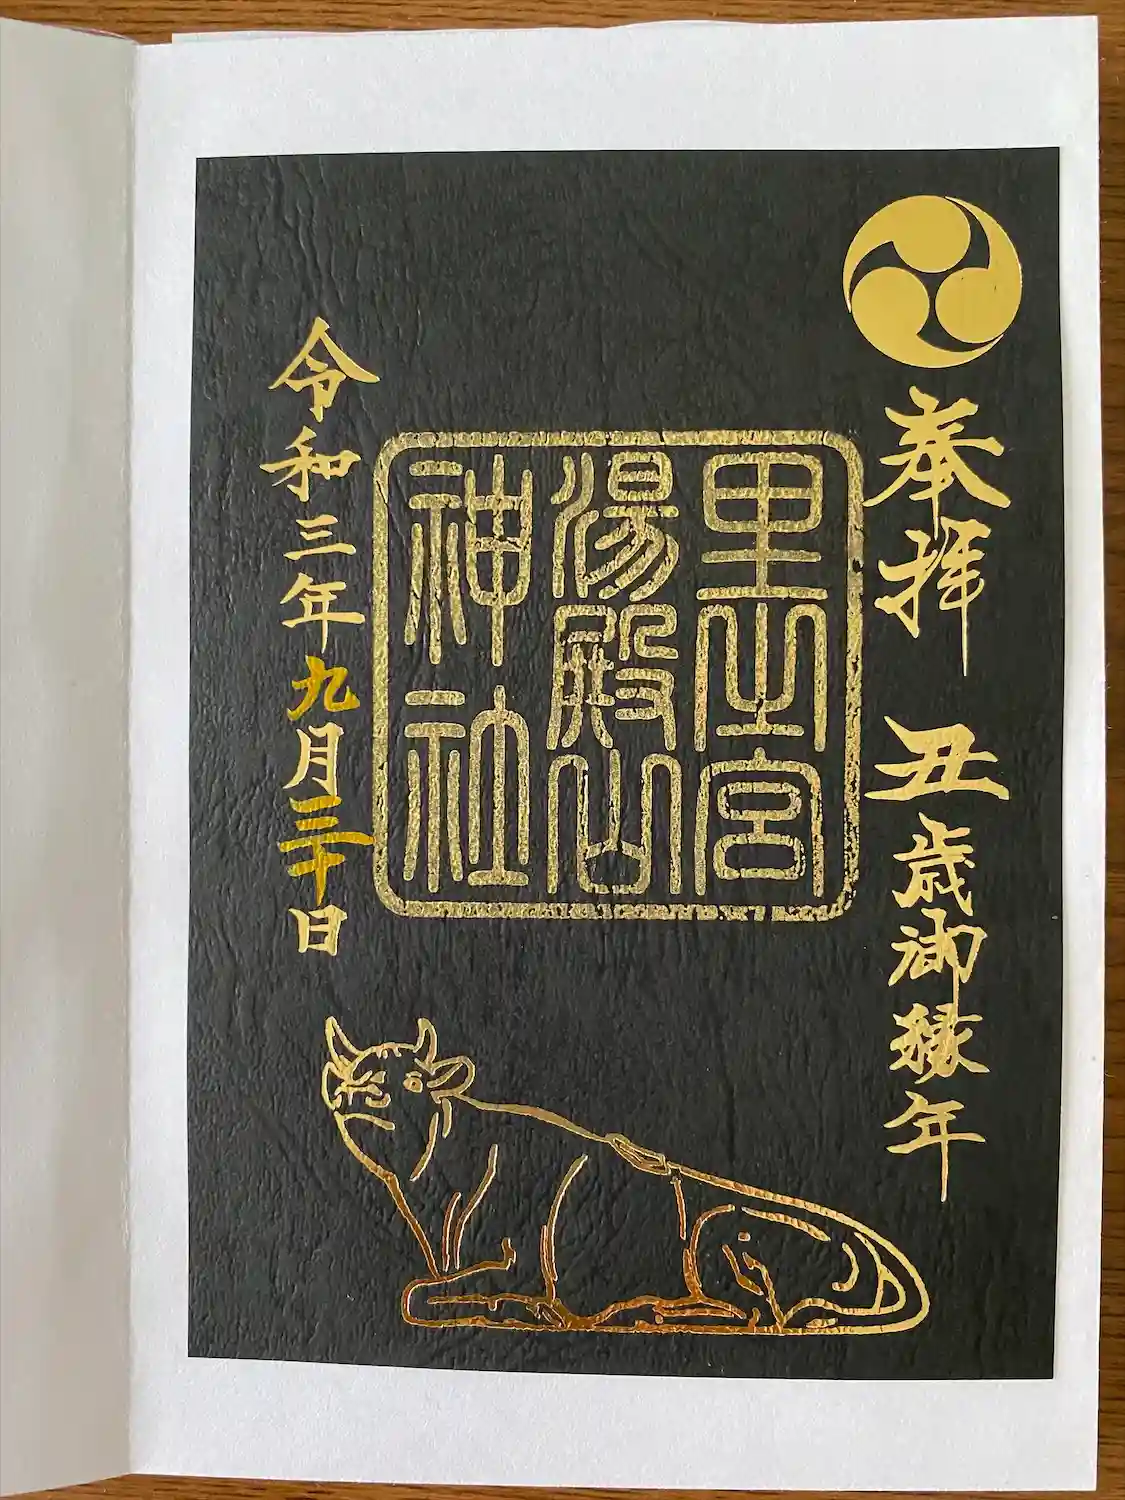 奉拝 丑歳御縁年
里之宮
湯殿山
神社
令和三年九月三十日